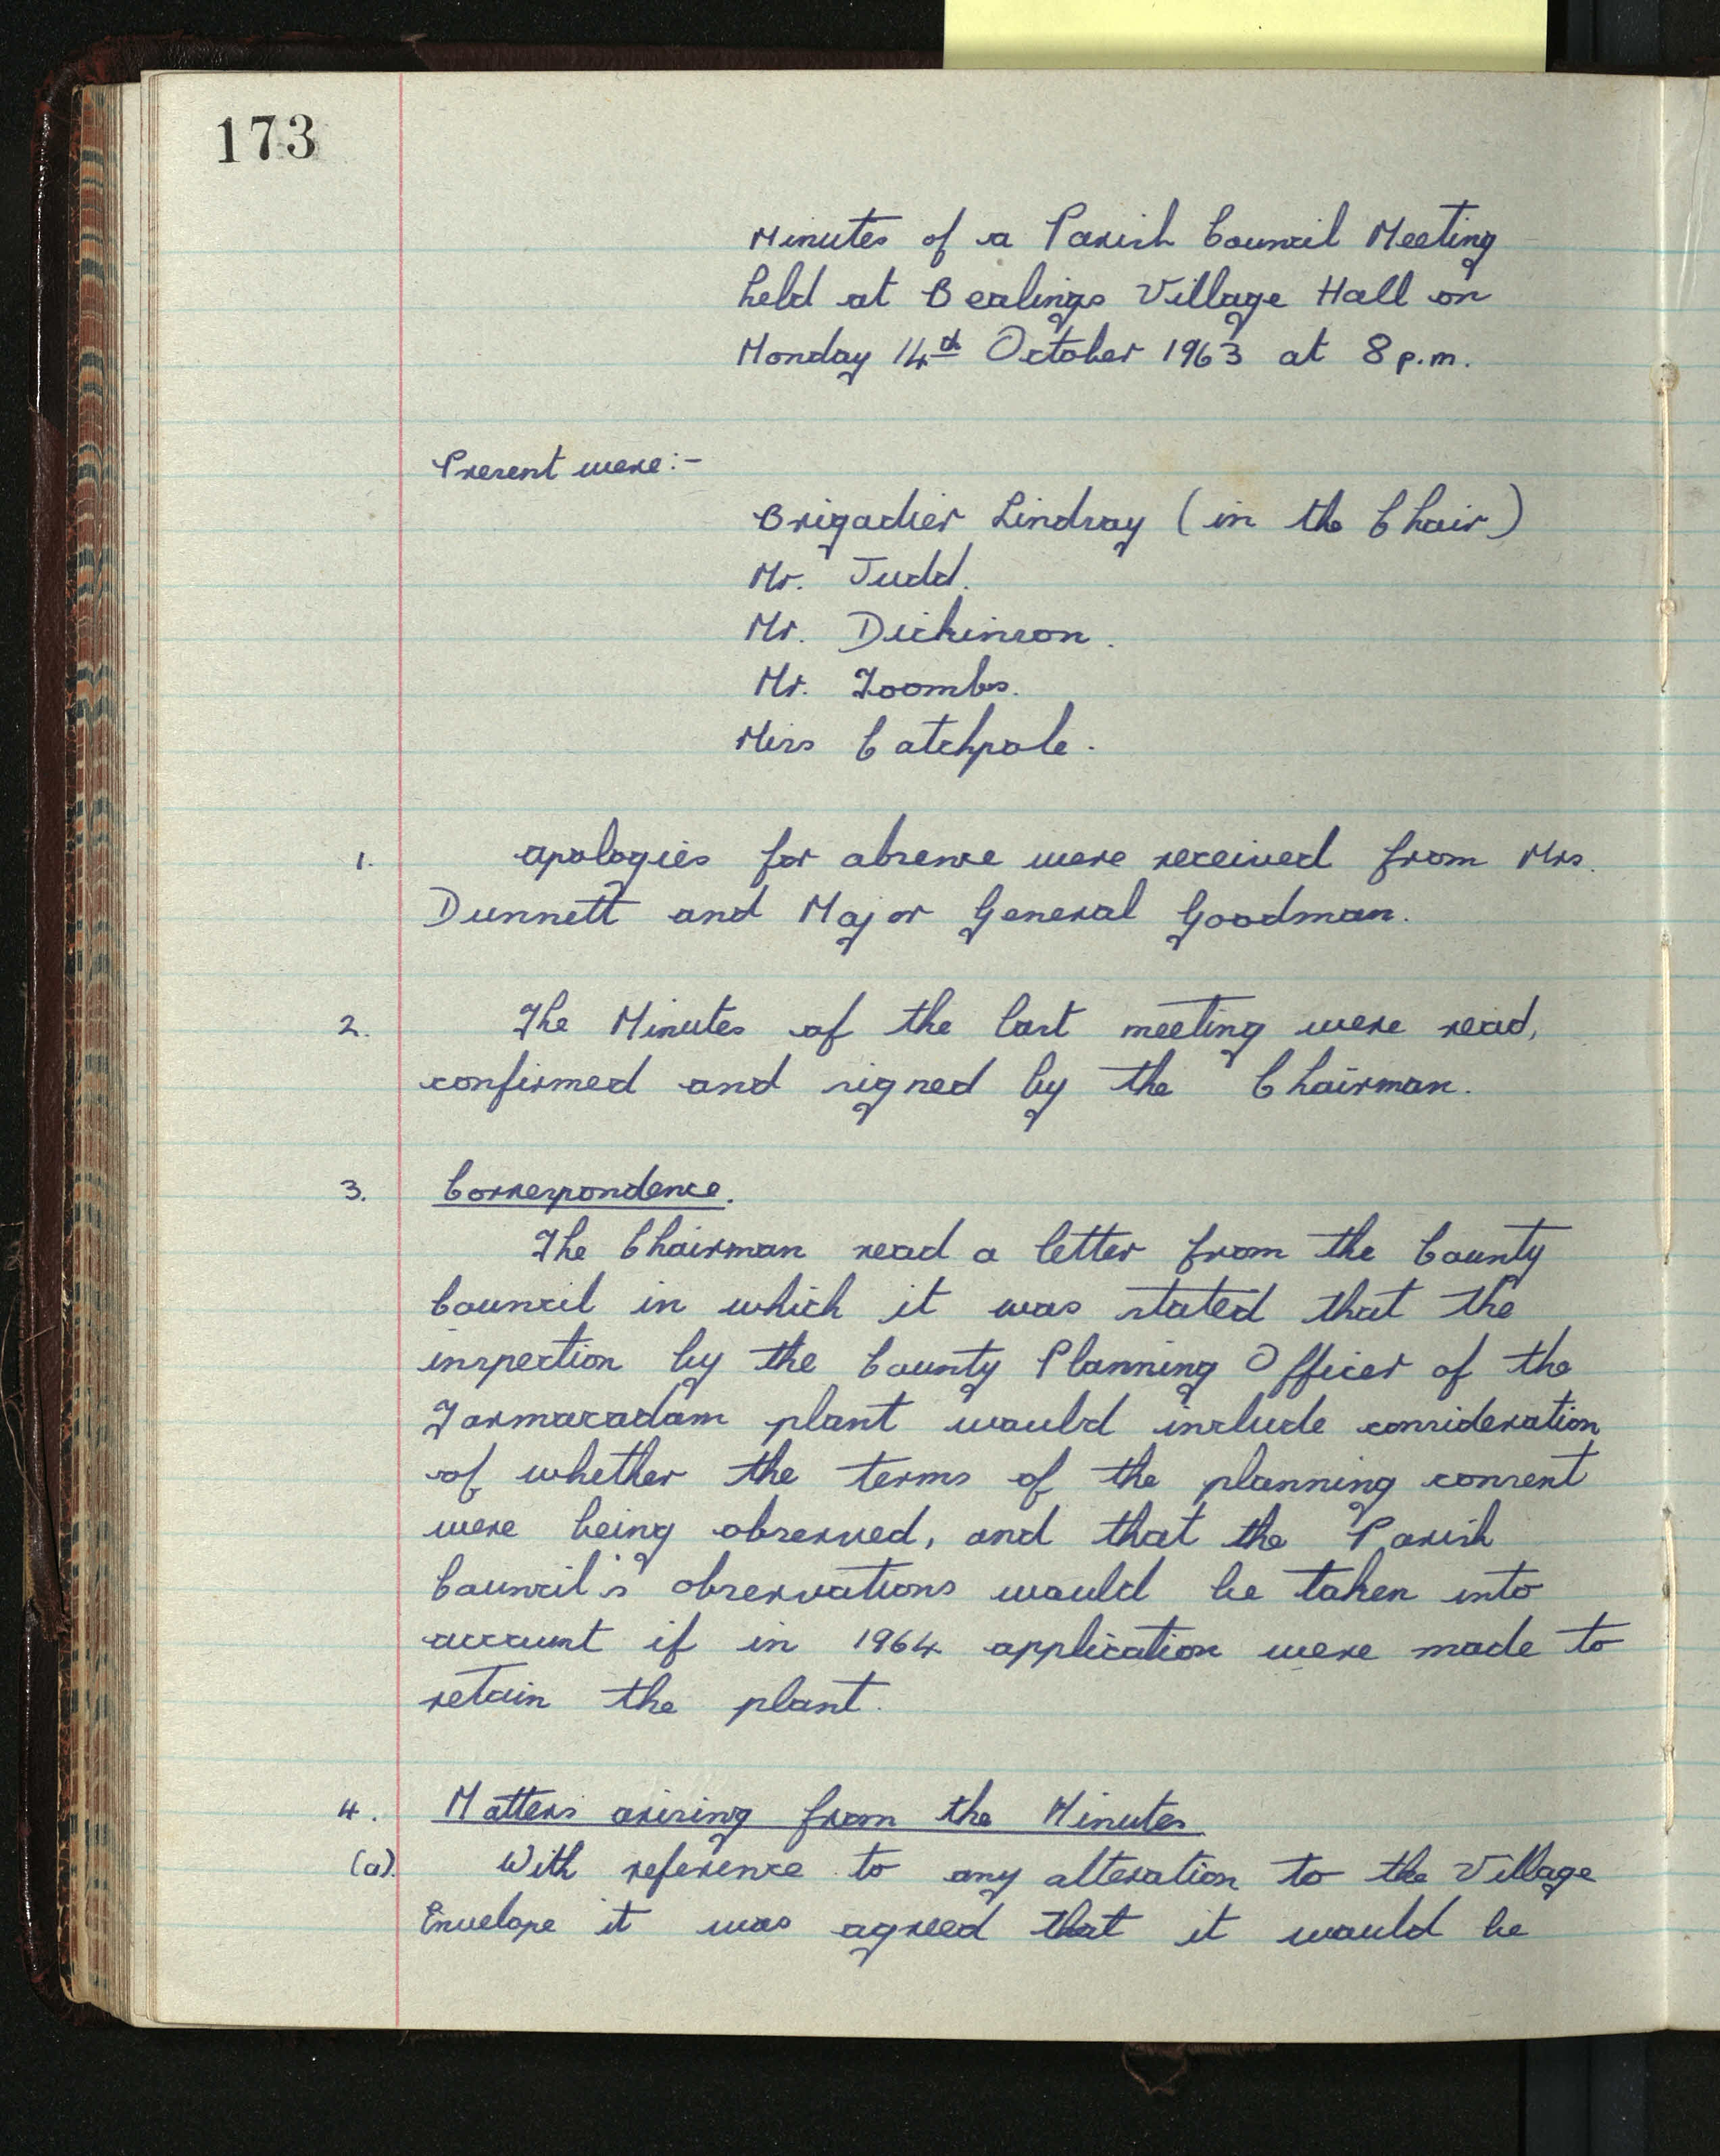 173
Minutes of a Parish Council Meeting
held at Bealings Village Hall on
Monday 14th October 1963 at 8 p.m.
Present were:-
Brigadier Lindsay (in the Chair)
Mr. Judd.
Mr. Dickinson.
Mr. Toombs.
Miss Catchpole.
1. apologies for absence were received from Mrs.
Dunnett and Major General Goodman.
2. The Minutes of the last meeting were read,
confirmed and signed by the Chairman.
3. Correspondence.
The Chairman read a letter from the County
Council in which it was stated that the
inspection by the County Planning Officer of the
Tarmacadam plant would include consideration
of whether the terms of the planning consent
were being observed, and that the Parish
Council's observations would be taken into
account if in 1964 application were made to
retain the plant.
4. Matters arising from the Minutes
(a). With reference to any alteration to the Village
Envelope it was agreed that it would be